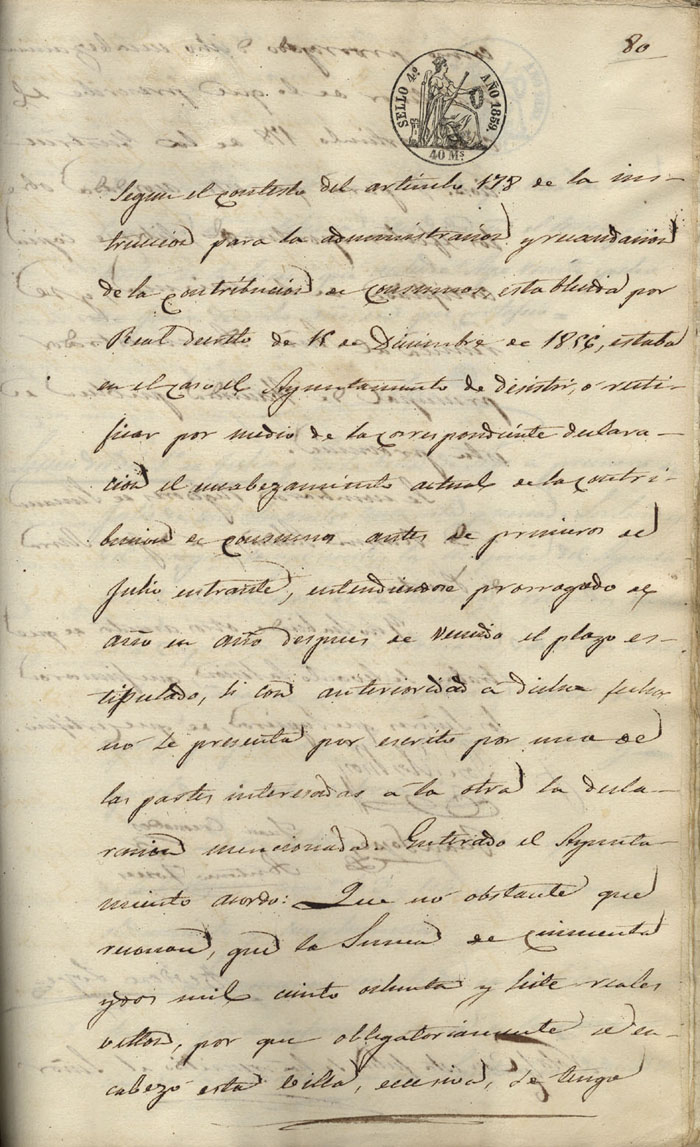 80
SELLO 4.º AÑO 1859.
40 Ms.
Segun el contesto del articulo 178 de la ins-
truccion para la administracion y recaudacion
de la contribucion de consumos, establecida por
Real decreto de 15 de Diciembre de 1856, estaba
en el caso el Ayuntamiento de desistir, ó recti-
ficar por medio de la correspondiente declara-
cion el encabezamiento actual de la contri-
bucion de consumos antes de primeros de
Julio entrante, entendiendose prorrogado de
año en año despues de vencido el plazo es-
tipulado, si con anterioridad a dicha fecha
no se presenta por escrito por una de
las partes interesadas á la otra la decla-
racion mencionada Enterado el Ayunta-
miento acordo: Que no obstante que
reconoce, que la Suma de cincuenta
y dos mil ciento ochenta y siete reales
vellon, por que obligatoriamente se en-
cabezó esta villa, escesiva, se tenga